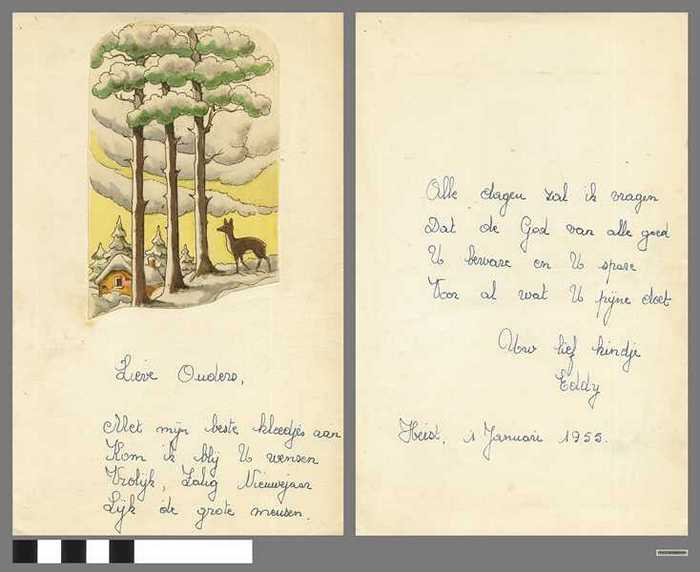 Lieve Ouders,
Met mijn beste kleedjes aan
Kom ik blij U wensen
Vrolijk, Zalig Nieuwejaar
Lijk de grote mensen.
Alle dagen zal ik vragen
Dat de God van alle goed
U beware en U spare
Voor al wat U pijne doet
Uw lief kindje
Eddy
Heist, 1 Januari 1955.